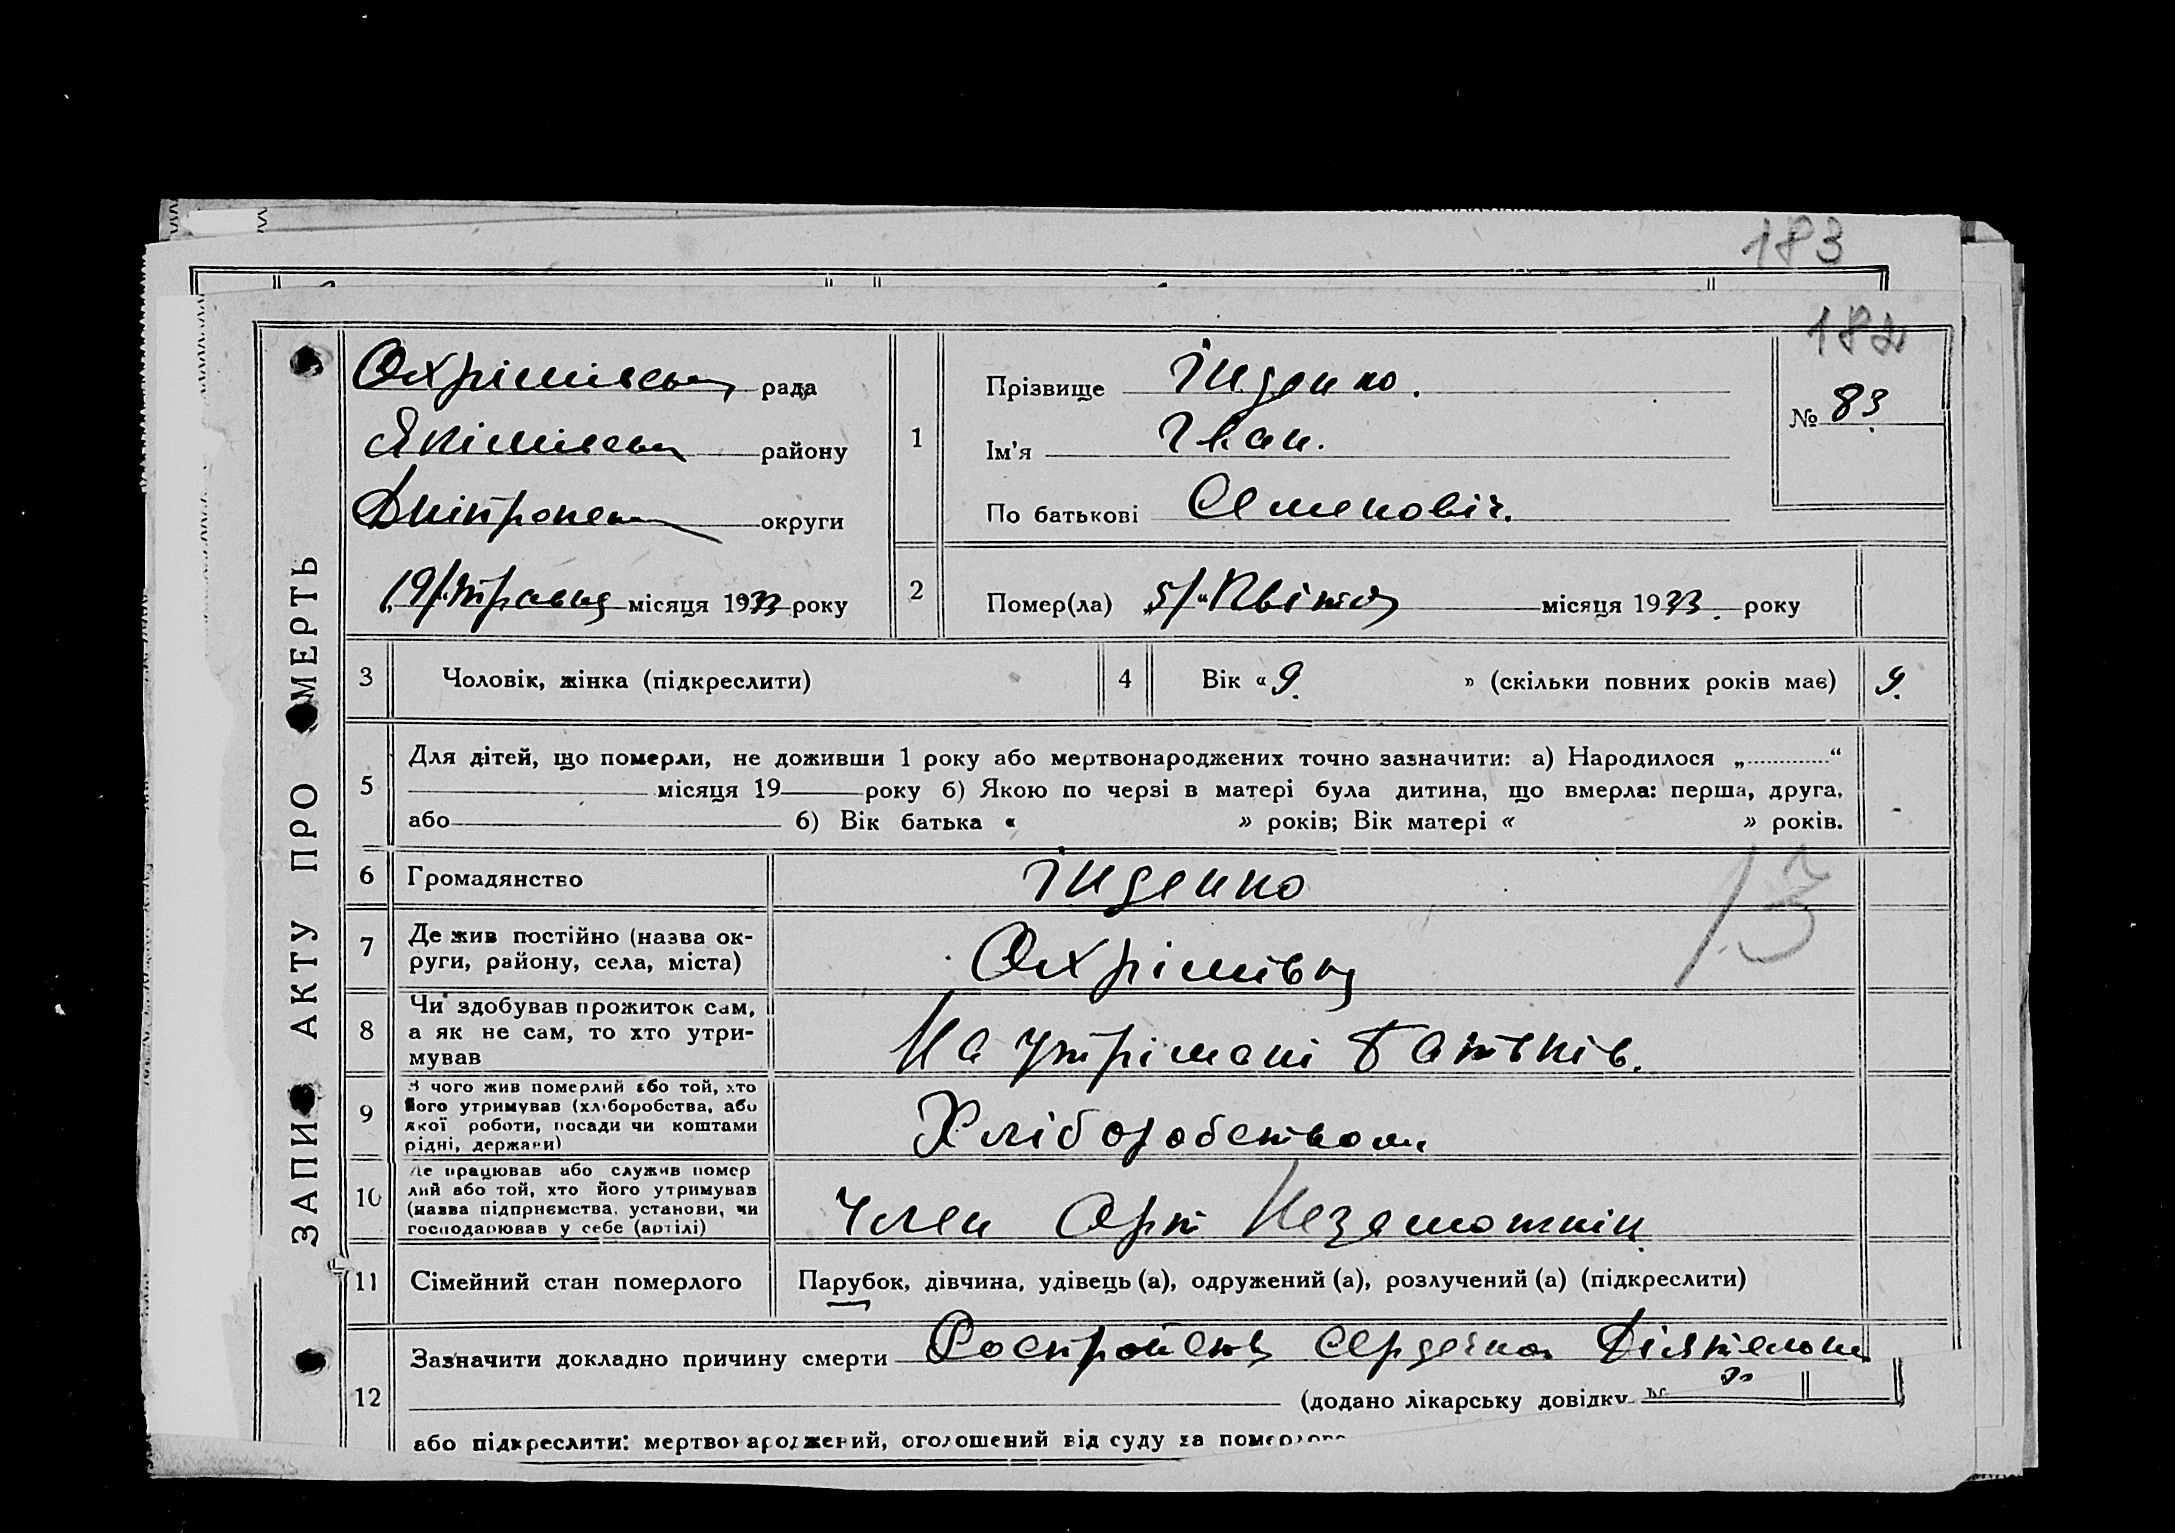 183
182
ЗАПИС АКТУ ПРО СМЕРТЬ
Охрімівська рада
Якімівськ району
Дніпропет округи
„19/“ травня місяця 1933 року
1
Прізвище Іщенко.
Ім'я Іван.
По батькові Семеновіч.
№ 83
2
Помер(ла) „5/“ Квітня місяця 1933. року
3 Чоловік, жінка (підкреслити)
4 Вік « 9. » (скільки повних років має) 9.
5
Для дітей, що померли, не доживши 1 року або мертвонароджених точно зазначити: а) Народилося „ “
місяця 19 року б) Якою по черзі в матері була дитина, що вмерла: перша, друга,
або б) Вік батька « » років; Вік матері « » років. -
6 Громадянство
13
7 Де жив постійно (назва ок-
руги, району, села, міста) Охрімівка
8 Чи здобував прожиток сам,
а як не сам, то хто утри-
мував На утрімані Батьків.
9 З чого жив померлий або той, хто
його утримував (хліборобства, або
якої роботи, посади чи коштами
рідні, держави) Хліборобством
10 Де працював або служив помер
лий або той, хто його утримував
(назва підприємства, установи, чи
господарював у себе (артілі) Член Арт Незаможнік
11 Сімейний стан померлого Парубок, дівчина, удівець (а), одружений (а), розлучений (а) (підкреслити)
12 Зазначити докладно причину смерти Росстройств сердечной Діятельн
(додано лікарську довідку №
або підкреслити: мертвонароджений, оголошений від суду за померлого